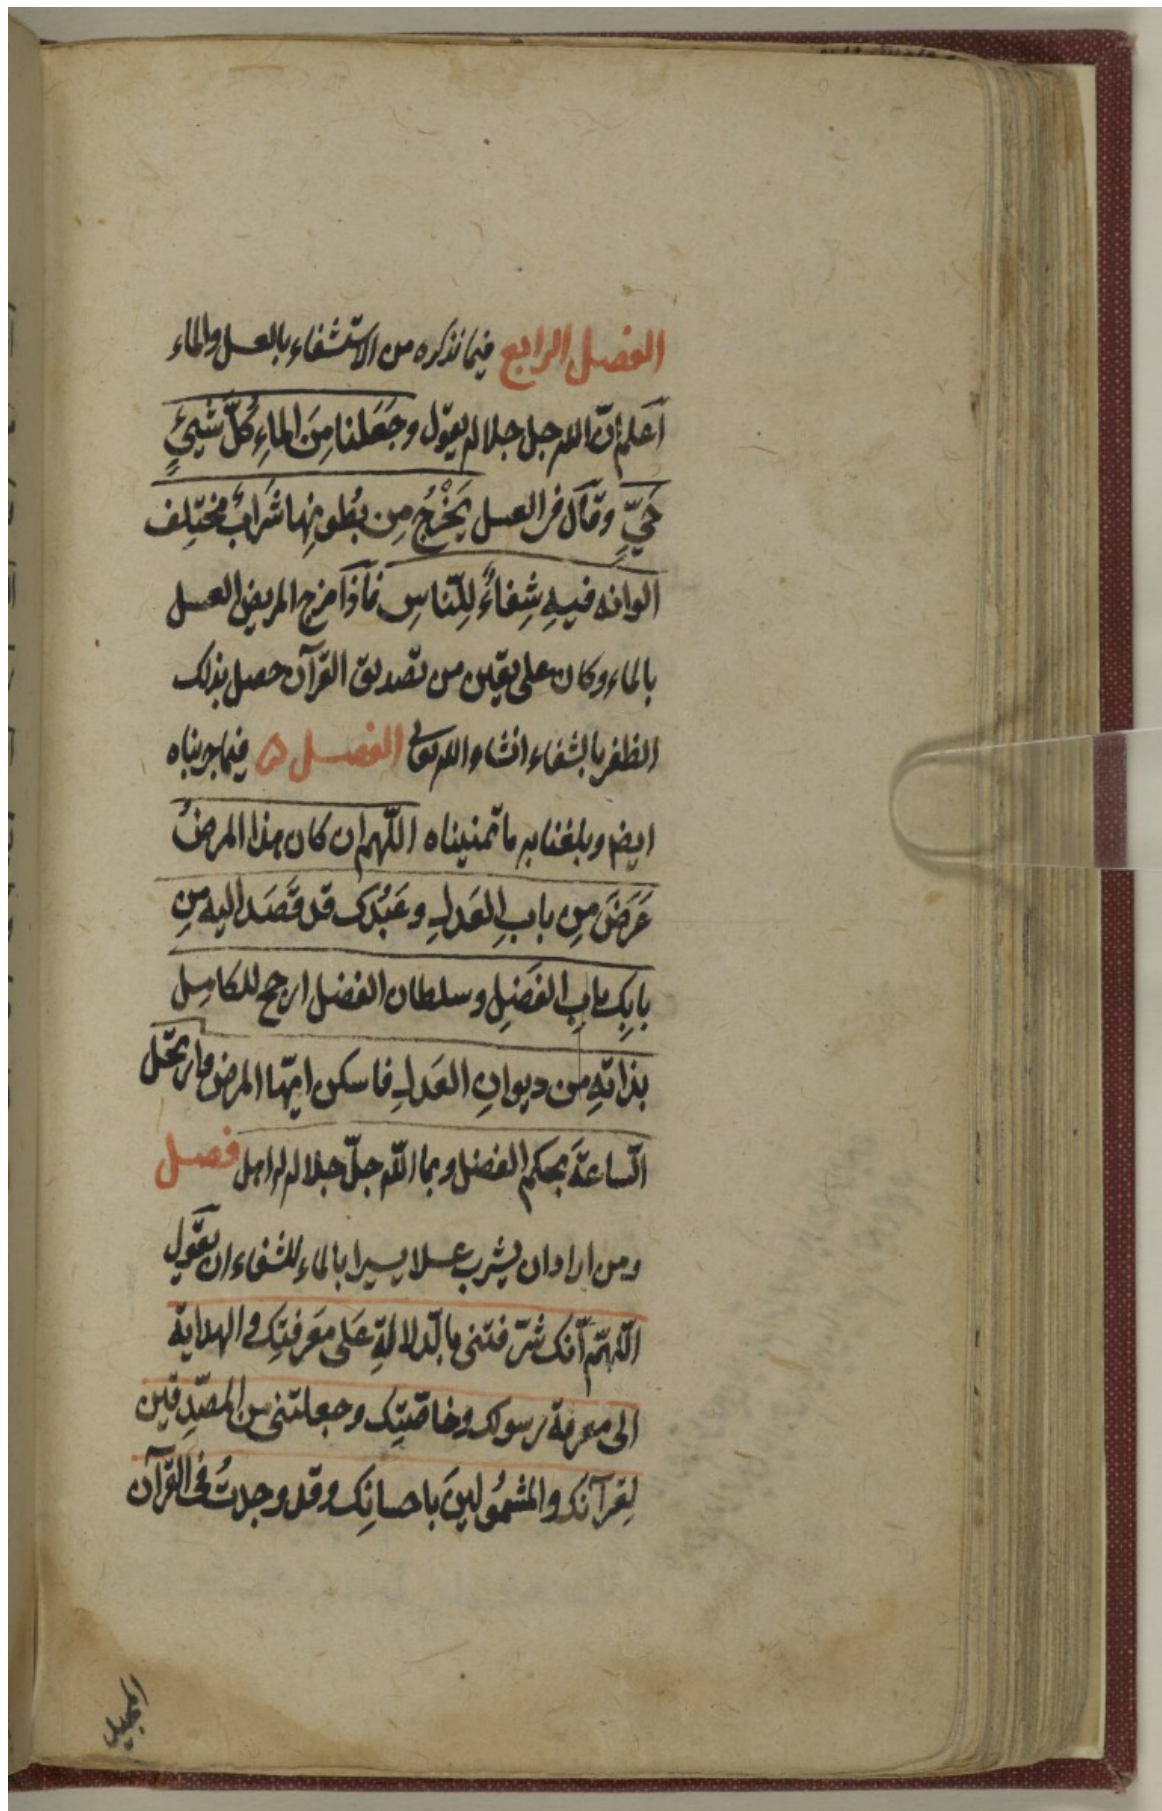 الفصل الرابع فيما نذكره من الاستشفاء بالعسل والماء
اَعلم انّ اللّه جل جلاله يقوّل وجَعَلنا مِنَ الماءِ كُلَّ شَيئٍ
حَيٍّ وقاَل في العسل يَخْرُجُ مِن بُطُونِها شَرابٌ مختَلِف
الوانه فيهِ شِفاءٌ لِلنّاسِ فَاذَا مزج المريض العسل
بالماء وكان على يقين من تصديق القرآن حصل بذلك
الظفر بالشفاء انشاء اللّه تعالى الفصل ۵ فيما جربناه
ايضا وبلغنا به ما تمنيناه اللّهم ان كان هذا المرضُ
عَرَضَ مِن بابِ العَدلِ وعَبْدُك قد قَصَد اليه مِن
بابِك بابِ الفَضلِ وسلطان الفضل ارجح للكامِل
بذاتهِ من ديوانِ العَدلِ فاسكن ايّها المرض وارتحّل
السّاعةَ بحكم الفضل وبما اللّه جلّ جلاله له اهل فصل
ومن اراد ان يشرب عسلا يسيرا بالماء للشفاء ان يقَول
اللّهمّ انّك شرّفتنى بالدّلالةِ عَلى مَعرفتِك والهداية
الى معرفة رسولك وخاصّتِك وجعلتنى من المصدّقين
لِقرآنك والمشمُولينَ باحسانِك وقد وجدتُ فى القرآن